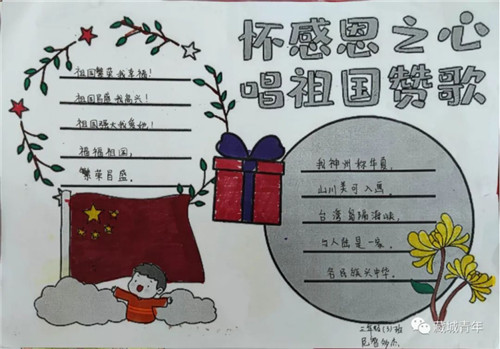 怀感恩之心
唱祖国赞歌
祖国繁荣我幸福!
祖国昌盛我高兴!
祖国强大我爱她!
福福祖国,
繁荣昌盛.
我神州称华夏,
山川美可入画,
台湾岛隔海峡,
与大陆是一家,
各民族共中华.
二年级(3)班